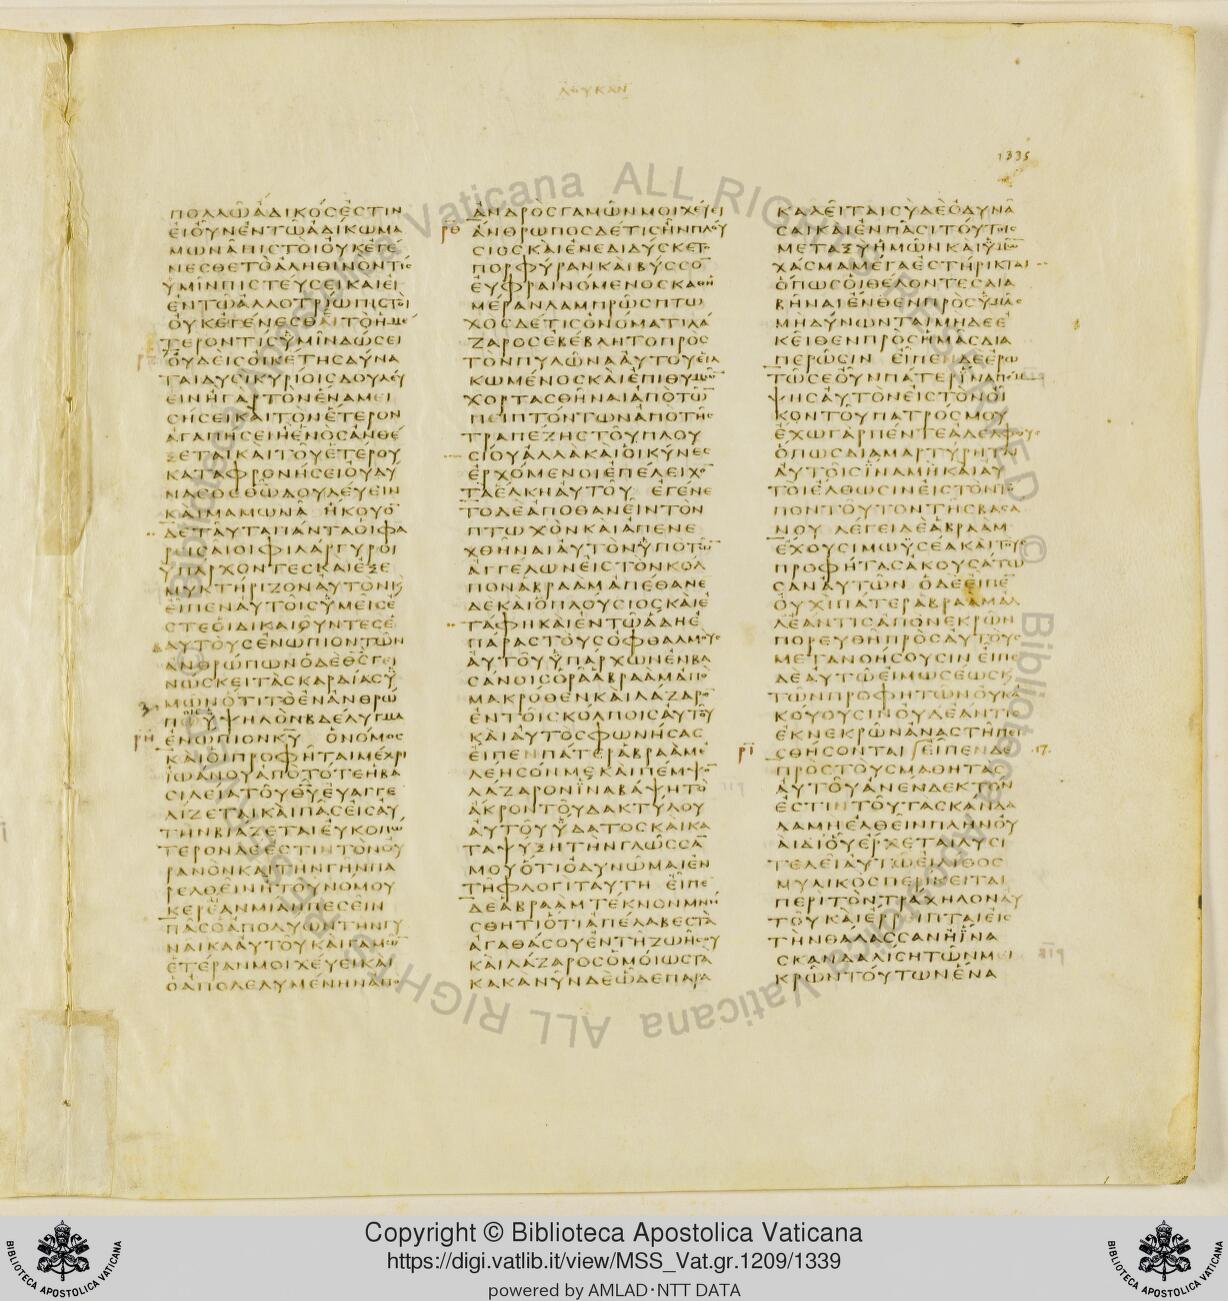 ΛΟΥΚΑΝ
1335
ΠΟΛΛΩ ΑΔΙΚΟΣ ΕΣΤΙΝ
ΕΙ ΟΥΝ ΕΝ ΤΩ ΑΔΙΚΩ ΜΑ
ΜΩΝΑ ΠΙΣΤΟΙ ΟΥΚ ΕΓΕ
ΝΕΣΘΕ ΤΟ ΑΛΗΘΙΝΟΝ ΤΙΣ
ΥΜΙΝ ΠΙΣΤΕΥΣΕΙ ΚΑΙ ΕΙ
ΕΝ ΤΩ ΑΛΛΟΤΡΙΩ ΠΙΣΤΟΙ
ΟΥΚ ΕΓΕΝΕΣΘΕ ΤΟ ΗΜΕ
ΤΕΡΟΝ ΤΙΣ ΥΜΙΝ ΔΩΣΕΙ
ΟΥΔΕΙΣ ΟΙΚΕΤΗΣ ΔΥΝΑ
ΤΑΙ ΔΥΣΙ ΚΥΡΙΟΙΣ ΔΟΥΛΕΥ
ΕΙΝ Η ΓΑΡ ΤΟΝ ΕΝΑ ΜΕΙ
ΣΗΣΕΙ ΚΑΙ ΤΟΝ ΕΤΕΡΟΝ
ΑΓΑΠΗΣΕΙ Η ΕΝΟΣ ΑΝΘΕ
ΞΕΤΑΙ ΚΑΙ ΤΟΥ ΕΤΕΡΟΥ
ΚΑΤΑΦΡΟΝΗΣΕΙ ΟΥ ΔΥ
ΝΑΣΘΕ ΘΩ ΔΟΥΛΕΥΕΙΝ
ΚΑΙ ΜΑΜΩΝΑ ΗΚΟΥΟ
ΔΕ ΤΑΥΤΑ ΠΑΝΤΑ ΟΙ ΦΑ
ΡΙΣΑΙΟΙ ΦΙΛΑΡΓΥΡΟΙ
ΥΠΑΡΧΟΝΤΕΣ ΚΑΙ ΕΞΕ
ΜΥΚΤΗΡΙΖΟΝ ΑΥΤΟΝ Κ
ΕΙΠΕΝ ΑΥΤΟΙΣ ΥΜΕΙΣ Ε
ΣΤΕ ΟΙ ΔΙΚΑΙΟΥΝΤΕΣ Ε
ΑΥΤΟΥΣ ΕΝΩΠΙΟΝ ΤΩΝ
ΑΝΘΡΩΠΩΝ Ο ΔΕ ΘΣ ΓΕΙ
ΝΩΣΚΕΙ ΤΑΣ ΚΑΡΔΙΑΣ Υ
ΜΩΝ ΟΤΙ ΤΟ ΕΝ ΑΝΘΡΩ
ΠΟΙΣ ΥΨΗΛΟΝ ΒΔΕΛΥΓΜΑ
ΡΗ ΕΝΩΠΙΟΝ ΚΥ Ο ΝΟΜΟΣ
ΚΑΙ ΟΙ ΠΡΟΦΗΤΑΙ ΜΕΧΡΙ
ΙΩΑΝΟΥ ΑΠΟ ΤΟΤΕ Η ΒΑ
ΣΙΛΕΙΑ ΤΟΥ ΘΥ ΕΥΑΓΓΕ
ΛΙΖΕΤΑΙ ΚΑΙ ΠΑΣ ΕΙΣ ΑΥ
ΤΗΝ ΒΙΑΖΕΤΑΙ ΕΥΚΟΠΩ
ΤΕΡΟΝ ΔΕ ΕΣΤΙΝ ΤΟΝ ΟΥ
ΡΑΝΟΝ ΚΑΙ ΤΗΝ ΓΗΝ ΠΑ
ΡΕΛΘΕΙΝ Η ΤΟΥ ΝΟΜΟΥ
ΚΕΡΕΑΝ ΜΙΑΝ ΠΕΣΕΙΝ
ΠΑΣ Ο ΑΠΟΛΥΩΝ ΤΗΝ ΓΥ
ΝΑΙΚΑ ΑΥΤΟΥ ΚΑΙ ΓΑΜΩΝ
ΕΤΕΡΑΝ ΜΟΙΧΕΥΕΙ ΚΑΙ
Ο ΑΠΟΛΕΛΥΜΕΝΗΝ ΑΠΟ
ΑΝΔΡΟΣ ΓΑΜΩΝ ΜΟΙΧΕΥΕΙ
ΡΘ ΑΝΘΡΩΠΟΣ ΔΕ ΤΙΣ ΗΝ ΠΛΟΥ
ΣΙΟΣ ΚΑΙ ΕΝΕΔΙΔΥΣΚΕΤΟ
ΠΟΡΦΥΡΑΝ ΚΑΙ ΒΥΣΣΟ
ΕΥΦΡΑΙΝΟΜΕΝΟΣ ΚΑΘ Η
ΜΕΡΑΝ ΛΑΜΠΡΩΣ ΠΤΩ
ΧΟΣ ΔΕ ΤΙΣ ΟΝΟΜΑΤΙ ΛΑ
ΖΑΡΟΣ ΕΒΕΒΛΗΤΟ ΠΡΟΣ
ΤΟΝ ΠΥΛΩΝΑ ΑΥΤΟΥ ΕΙΛ
ΚΩΜΕΝΟΣ ΚΑΙ ΕΠΙΘΥΜΩΝ
ΧΟΡΤΑΣΘΗΝΑΙ ΑΠΟ ΤΩ
ΠΕΙΠΤΟΝΤΩΝ ΑΠΟ ΤΗΣ
ΤΡΑΠΕΖΗΣ ΤΟΥ ΠΛΟΥ
ΣΙΟΥ ΑΛΛΑ ΚΑΙ ΟΙ ΚΥΝΕΣ
ΕΡΧΟΜΕΝΟΙ ΕΠΕΛΕΙΧΟ
ΤΑ ΕΛΚΗ ΑΥΤΟΥ ΕΓΕΝΕ
ΤΟ ΔΕ ΑΠΟΘΑΝΕΙΝ ΤΟΝ
ΠΤΩΧΟΝ ΚΑΙ ΑΠΕΝΕ
ΧΘΗΝΑΙ ΑΥΤΟΝ ΥΠΟ ΤΩ
ΑΓΓΕΛΩΝ ΕΙΣ ΤΟΝ ΚΟΛ
ΠΟΝ ΑΒΡΑΑΜ ΑΠΕΘΑΝΕ
ΔΕ ΚΑΙ Ο ΠΛΟΥΣΙΟΣ ΚΑΙ Ε
ΤΑΦΗ ΚΑΙ ΕΝ ΤΩ ΑΔΗ Ε
ΠΑΡΑΣ ΤΟΥΣ ΟΦΘΑΛΜΟΥΣ
ΑΥΤΟΥ ΥΠΑΡΧΩΝ ΕΝ ΒΑ
ΣΑΝΟΙΣ ΟΡΑ ΑΒΡΑΑΜ ΑΠΟ
ΜΑΚΡΟΘΕΝ ΚΑΙ ΛΑΖΑΡΟ
ΕΝ ΤΟΙΣ ΚΟΛΠΟΙΣ ΑΥΤΟΥ
ΚΑΙ ΑΥΤΟΣ ΦΩΝΗΣΑΣ
ΕΙΠΕΝ ΠΑΤΕΡ ΑΒΡΑΑΜ Ε
ΛΕΗΣΟΝ ΜΕ ΚΑΙ ΠΕΜΨΟ
ΛΑΖΑΡΟΝ ΙΝΑ ΒΑΨΗ ΤΟ
ΑΚΡΟΝ ΤΟΥ ΔΑΚΤΥΛΟΥ
ΑΥΤΟΥ ΥΔΑΤΟΣ ΚΑΙ ΚΑ
ΤΑΨΥΞΗ ΤΗΝ ΓΛΩΣΣΑ
ΜΟΥ ΟΤΙ ΟΔΥΝΩΜΑΙ ΕΝ
ΤΗ ΦΛΟΓΙ ΤΑΥΤΗ ΕΙΠΕ
ΔΕ ΑΒΡΑΑΜ ΤΕΚΝΟΝ ΜΝΗ
ΣΘΗΤΙ ΟΤΙ ΑΠΕΛΑΒΕΣ ΤΑ
ΑΓΑΘΑ ΣΟΥ ΕΝ ΤΗ ΖΩΗ ΣΟΥ
ΚΑΙ ΛΑΖΑΡΟΣ ΟΜΟΙΩΣ ΤΑ
ΚΑΚΑ ΝΥΝ ΔΕ ΩΔΕ ΠΑΡΑ
ΚΑΛΕΙΤΑΙ ΣΥ ΔΕ ΟΔΥΝΑ
ΣΑΙ ΚΑΙ ΕΝ ΠΑΣΙ ΤΟΥΤΟΙΣ
ΜΕΤΑΞΥ ΗΜΩΝ ΚΑΙ ΥΜΩΝ
ΧΑΣΜΑ ΜΕΓΑ ΕΣΤΗΡΙΚΤΑΙ
ΟΠΩΣ ΟΙ ΘΕΛΟΝΤΕΣ ΔΙΑ
ΒΗΝΑΙ ΕΝΘΕΝ ΠΡΟΣ ΥΜΑΣ
ΜΗ ΔΥΝΩΝΤΑΙ ΜΗΔΕ Ε
ΚΕΙΘΕΝ ΠΡΟΣ ΗΜΑΣ ΔΙΑ
ΠΕΡΩΣΙΝ ΕΙΠΕΝ ΔΕ ΕΡΩ
ΤΩ ΣΕ ΟΥΝ ΠΑΤΕΡ ΙΝΑ ΠΕΜ
ΨΗΣ ΑΥΤΟΝ ΕΙΣ ΤΟΝ ΟΙ
ΚΟΝ ΤΟΥ ΠΑΤΡΟΣ ΜΟΥ
ΕΧΩ ΓΑΡ ΠΕΝΤΕ ΑΔΕΛΦΟΥΣ
ΟΠΩΣ ΔΙΑΜΑΡΤΥΡΗΤΑΙ
ΑΥΤΟΙΣ ΙΝΑ ΜΗ ΚΑΙ ΑΥ
ΤΟΙ ΕΛΘΩΣΙΝ ΕΙΣ ΤΟΝ ΤΟ
ΠΟΝ ΤΟΥΤΟΝ ΤΗΣ ΒΑΣΑ
ΝΟΥ ΛΕΓΕΙ ΔΕ ΑΒΡΑΑΜ
ΕΧΟΥΣΙ ΜΩΥΣΕΑ ΚΑΙ ΤΟΥΣ
ΠΡΟΦΗΤΑΣ ΑΚΟΥΣΑΤΩ
ΣΑΝ ΑΥΤΩΝ Ο ΔΕ ΕΙΠΕ
ΟΥΧΙ ΠΑΤΕΡ ΑΒΡΑΑΜ ΑΛ
ΛΕΑΝ ΤΙΣ ΑΠΟ ΝΕΚΡΩΝ
ΠΟΡΕΥΘΗ ΠΡΟΣ ΑΥΤΟΥΣ
ΜΕΤΑΝΟΗΣΟΥΣΙΝ ΕΙΠΕ
ΔΕ ΑΥΤΩ ΕΙ ΜΩΣΕΩΣ Κ
ΤΩΝ ΠΡΟΦΗΤΩΝ ΟΥΚ Α
ΚΟΥΟΥΣΙΝ ΟΥΔ ΕΑΝ ΤΙΣ
ΕΚ ΝΕΚΡΩΝ ΑΝΑΣΤΗ ΠΕΙ
ΡΙ ΣΘΗΣΟΝΤΑΙ ΕΙΠΕΝ ΔΕ
ΠΡΟΣ ΤΟΥΣ ΜΑΘΗΤΑΣ
ΑΥΤΟΥ ΑΝΕΝΔΕΚΤΟΝ
ΕΣΤΙΝ ΤΟΥ ΤΑ ΣΚΑΝΔΑ
ΛΑ ΜΗ ΕΛΘΕΙΝ ΠΛΗΝ ΟΥ
ΑΙ ΔΙ ΟΥ ΕΡΧΕΤΑΙ ΛΥΣΙ
ΤΕΛΕΙ ΑΥΤΩ ΕΙ ΛΙΘΟΣ
ΜΥΛΙΚΟΣ ΠΕΡΙΚΕΙΤΑΙ
ΠΕΡΙ ΤΟΝ ΤΡΑΧΗΛΟΝ ΑΥ
ΤΟΥ ΚΑΙ ΕΡΡΙΠΤΑΙ ΕΙΣ
ΤΗΝ ΘΑΛΑΣΣΑΝ Η ΙΝΑ
ΣΚΑΝΔΑΛΙΣΗ ΤΩΝ ΜΕΙ
ΚΡΩΝ ΤΟΥΤΩΝ ΕΝΑ
Copyright © Biblioteca Apostolica Vaticana
https://digi.vatlib.it/view/MSS_Vat.gr.1209/1339
powered by AMLAD·NTT DATA